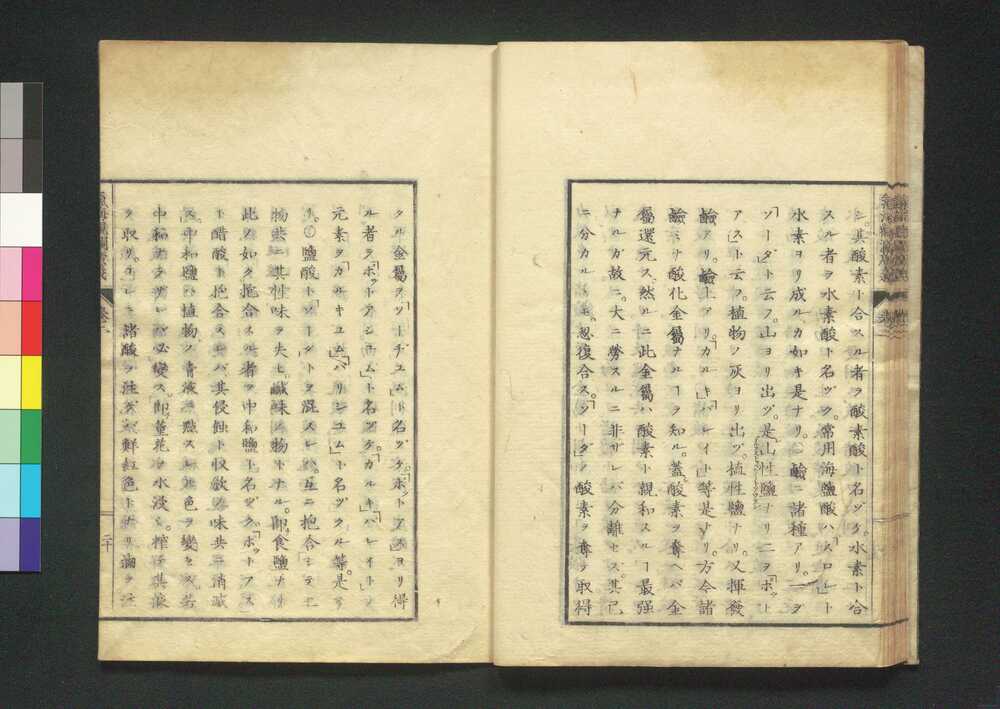 シ其酸素ト合スル者ヲ酸素酸ト名ヅケ水素ト合
スル者ヲ水素酸ト名ヅク。常用海鹽酸ハ「スロレ」ト
水素ヨリ成ルカ如キ是ナリ。○鹼ニ諸種アリ。一ヲ
「ソーダ」ト云フ。山ヨリ出ヅ。是「山性鹽」ナリ二ヲ「ポット
アス」ト云フ。植物ノ灰ヨリ出ヅ。植性鹽ナリ。又揮發
鹼アリ。鹼土アリ。「カルキ」「バレイト」等是ナリ。方今諸
鹼ミナ酸化金屬ナルヿヲ知ル。蓋酸素ヲ奪ヘバ金
屬還元ス然ルニ此金屬ハ酸素ト親和スルヿ最强
ナルガ故ニ。大ニ勞スルニ非ザレバ分離セス。其已
ニ分カルモ。忽復合ス。「ソーダ」ノ酸素ヲ奪テ取得
タル金屬ヲ「ソーヂユム」ト名ヅケ。「ポットアス」ヨリ得
ル者ヲ「ポットアシユム」ト名ヅケ。「カルキ」「バレイト」ノ
元素ヲ「カルキユム」「バリシユム」ト名ヅクル等。是ナ
リ。○鹽酸ト「ソーダ」トヲ混スレバ。互ニ抱合シテ二
物共ニ其性味ヲ失ヒ鹹味ノ物トナル。卽食鹽ナリ
此ノ如ク抱合スル者ヲ中和鹽ト名ヅク。「ポットアス」
ト醋酸ト抱合スレバ其侵蝕ト收歛ノ味共ニ消滅
ス。中和鹽ハ植物ノ靑液ニ點スルモ色ヲ變セス。若
中和ナラザレバ必變ス。卽菫花ヲ水浸シ。榨テ其液
ヲ取リ。コレニ諸酸ヲ注ゲバ鮮紅色トナリ滷ヲ注